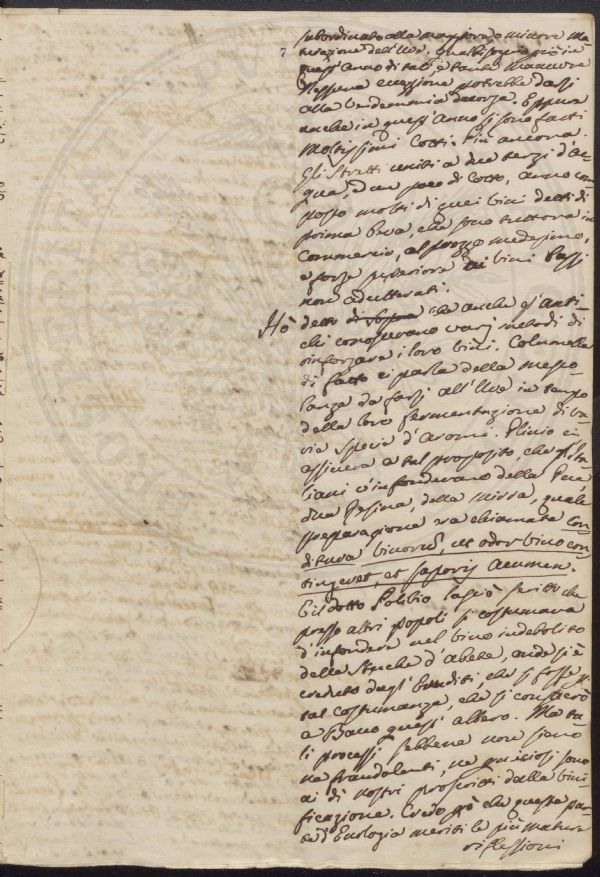 7
subordinato alla maggiore o minore ma
turazione dell'Uve. Qual bisogno più in
quest'Anno di tali e tante manovre
Nessuna eccezione potrebbe darsi
alla Vendemmia decorsa. Eppure
anche in quest'Anno si sono fatti
moltissimi Cotti. Più ancora.
Gli Stretti uniti a due terzi d'ac
qua, d un poco di Cotto, anno com
posto molti di quei Vini detti di
prima Beva, che sono tuttora in
Commercio, al prezzo medesimo,
e forse superiore ai Vini Passi
non adulterati.
Hò detto di sopra che anche gl'anti
chi conoscevano varj metodi di
rinforzare i loro Vini. Columella
di fatto ci parla della mesco
lanza da farsi all'Uve in tempo
della loro fermentazione di va
rie specie d'Aromi. Plinio ci
assicura a tal proposito, che gl'Ita
liani v'infondevano della Pece
della Resina, della mirra, quale
preparazione era chiamata Con
ditura Vinorũ, ut odor vino con
tingeret, et saporis acumen.
Il dotto Polibio lasciò scritto che
presso altri popoli si costumava
d'infondere nel vino indebolito
delle Stecche d'abete, onde si è
creduto dagl'Eruditi, che si fosse p.
tal costumanza, che si consacrò
a Bacco quest'albero. Ma ta
li processi sebbene non siano
ne fraudolenti, ne perniciosi sono
ai dì nostri proscritti dalla Vini
ficazione. Credo però che questa par
te d'Enologia meriti le più mature
riflessioni